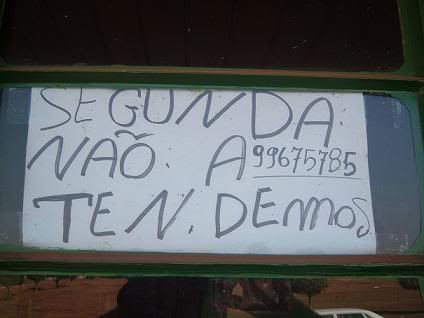 SEGUNDA:
NAÕ: A 99675785
TEN.DEMOS